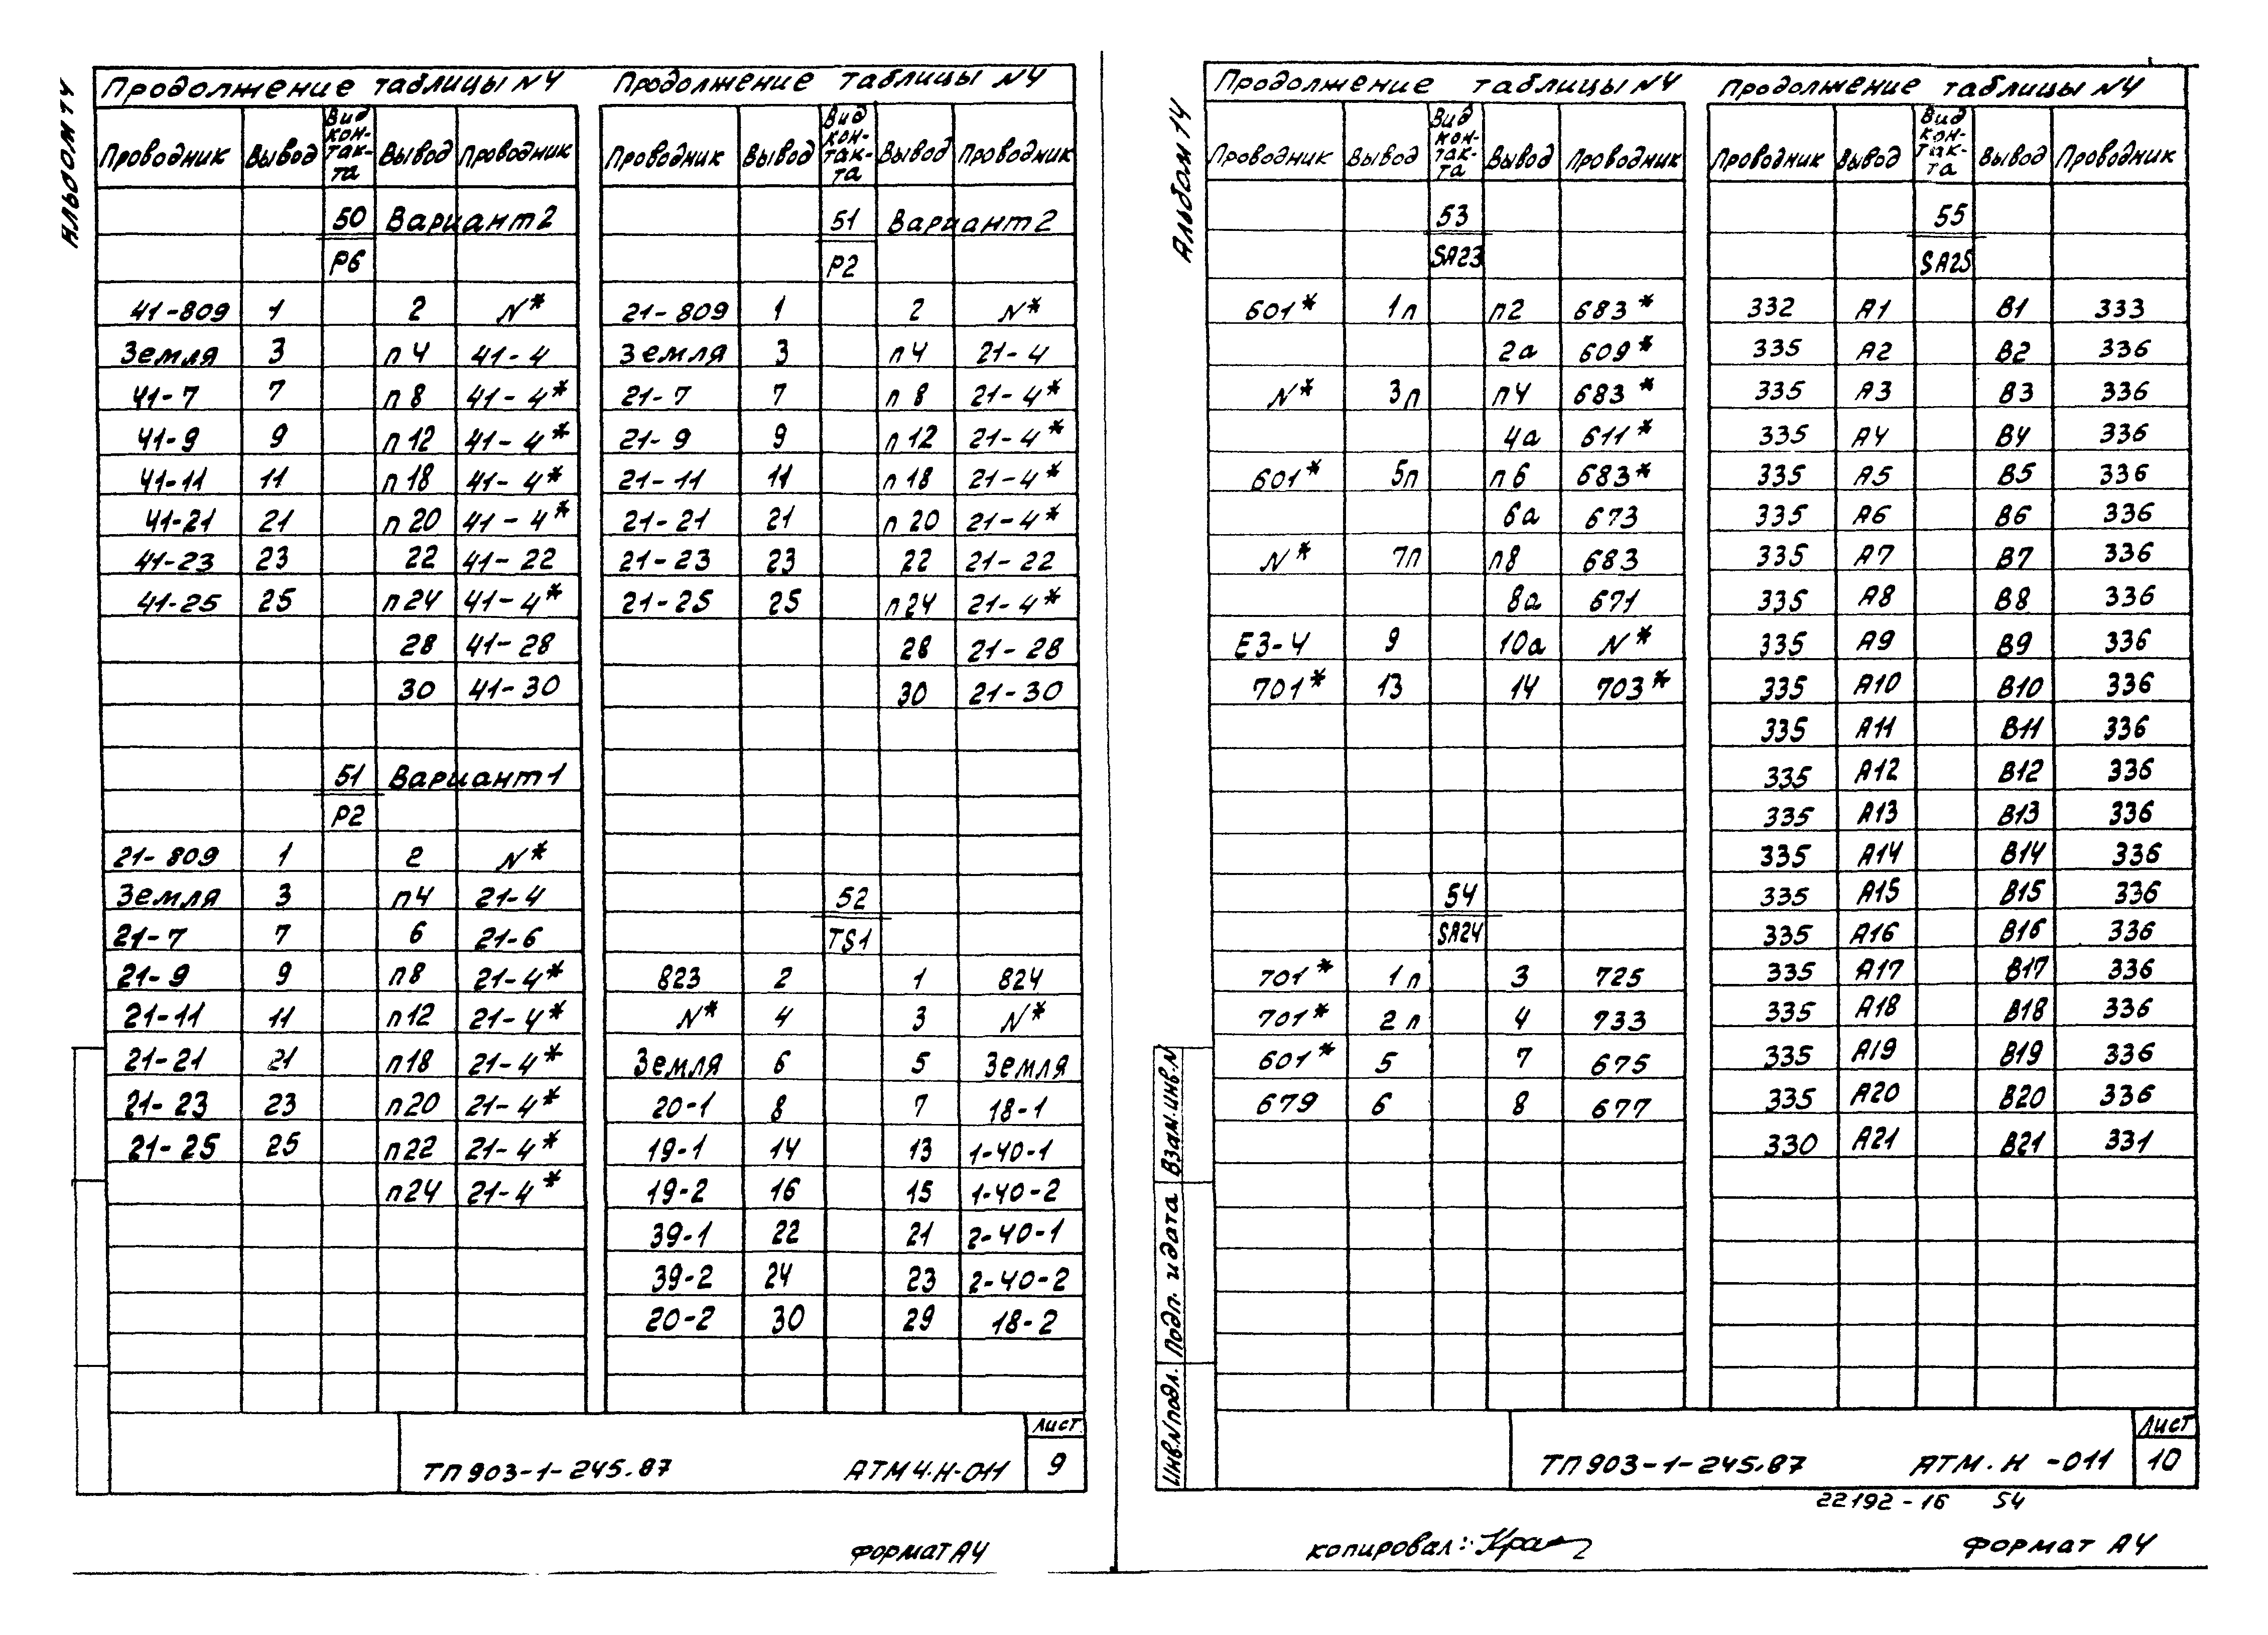 Альбом 14
Продолжение таблицы N4
Проводник Вывод Вид кон-так-та Вывод Проводник
50 Вариант 2
Р6
41-809 1 2 N*
Земля 3 п4 41-4
41-7 7 п8 41-4*
41-9 9 п12 41-4*
41-11 11 п18 41-4*
41-21 21 п20 41-4*
41-23 23 22 41-22
41-25 25 п24 41-4*
28 41-28
30 41-30
51 Вариант 1
Р2
21-809 1 2 N*
Земля 3 п4 21-4
21-7 7 6 21-6
21-9 9 п8 21-4*
21-11 11 п12 21-4*
21-21 21 п18 21-4*
21-23 23 п20 21-4*
21-25 25 п22 21-4*
п24 21-4*
Продолжение таблицы N4
Проводник Вывод Вид кон-так-та Вывод Проводник
51 Вариант 2
Р2
21-809 1 2 N*
Земля 3 п4 21-4
21-7 7 п8 21-4*
21-9 9 п12 21-4*
21-11 11 п18 21-4*
21-21 21 п20 21-4*
21-23 23 22 21-22
21-25 25 п24 21-4*
28 21-28
30 21-30
52
TS1
823 2 1 824
N* 4 3 N*
Земля 6 5 Земля
20-1 8 7 18-1
19-1 14 13 1-40-1
19-2 16 15 1-40-2
39-1 22 21 2-40-1
39-2 24 23 2-40-2
20-2 30 29 18-2
ТП 903-1-245.87 АТМ4.Н-011
Лист
9
Формат А4
Альбом 14
Продолжение таблицы N4
Проводник Вывод Вид кон-так-та Вывод Проводник
53
SA23
601* 1п п2 683*
2а 609*
N* 3п п4 683*
4а 611*
601* 5п п6 683*
6а 673
N* 7п п8 683
8а 671
Е3-4 9 10а N*
701* 13 14 703*
54
SA24
701* 1п 3 725
701* 2п 4 733
601* 5 7 675
679 6 8 677
Продолжение таблицы N4
Проводник Вывод Вид кон-так-та Вывод Проводник
55
SA25
332 А1 В1 333
335 А2 В2 336
335 А3 В3 336
335 А4 В4 336
335 А5 В5 336
335 А6 В6 336
335 А7 В7 336
335 А8 В8 336
335 А9 В9 336
335 А10 В10 336
335 А11 В11 336
335 А12 В12 336
335 А13 В13 336
335 А14 В14 336
335 А15 В15 336
335 А16 В16 336
335 А17 В17 336
335 А18 В18 336
335 А19 В19 336
335 А20 В20 336
330 А21 В21 331
Инв.N подл. Подп. и дата Взам.инв.N
ТП 903-1-245.87 АТМ.Н -011
Лист
10
22192-16 54
копировал:
Формат А4